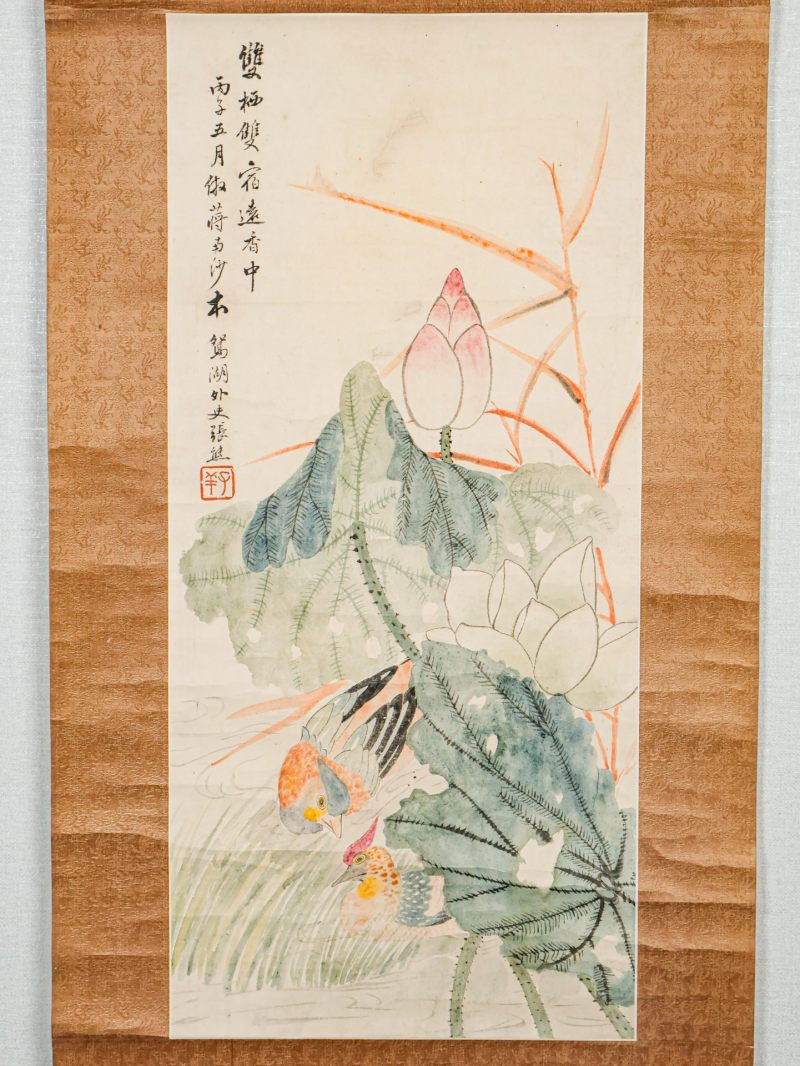 雙栖雙宿遠香中
丙子五月倣蔣南沙本
鴛湖外史張熊
子羊